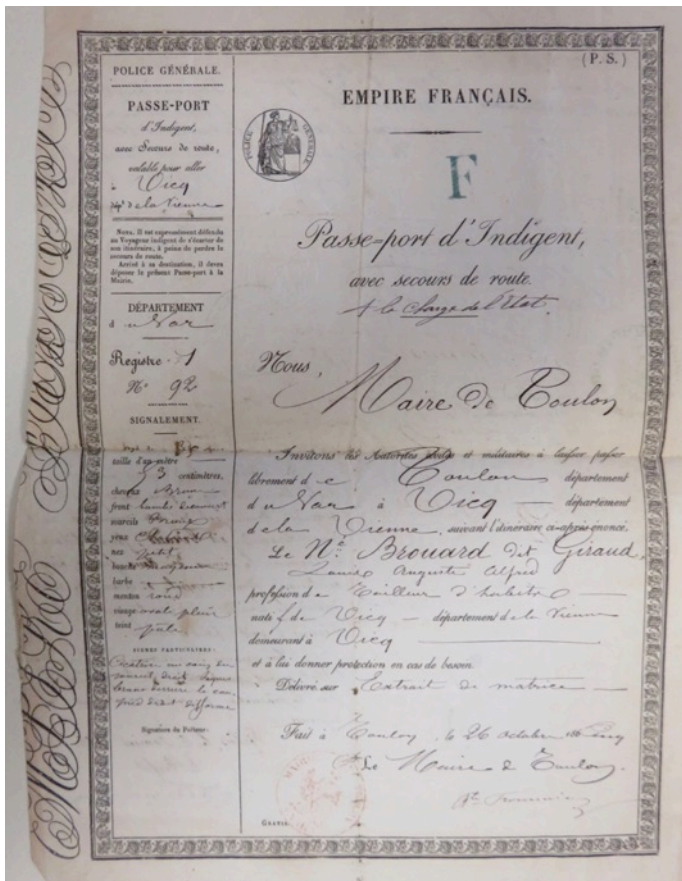 POLICE GÉNÉRALE.
PASSE-PORT
d'Indigent,
avec Secours de route,
valable pour aller
à Vicq
de la Vienne
Nota. Il est expressément défendu
au Voyageur indigent de s'écarter de
son itinéraire, à peine de perdre le
secours de route.
Arrivé à sa destination, il devra
déposer le présent Passe-port à la
Mairie.
DÉPARTEMENT
du Var
Registre 1
N° 92
SIGNALEMENT.
taille d'un mètre
53 centimètres,
cheveux
front
sourcils
yeux
nez petit
bouche
barbe
menton rond
visage ovale plein
teint pâle
SIGNES PARTICULIERS:
Cicatrice
droit
brune derrière le
pied droit difforme
Signature du Porteur.
(P. S.)
EMPIRE FRANÇAIS.
POLICE GÉNÉRALE
F
Passe=port d'Indigent,
avec secours de route.
à la charge de l'Etat.
Nous,
Maire de Toulon
Invitons les Autorités civiles et militaires à laisser passer
librement de Toulon département
du Var à Vicq département
de la Vienne, suivant l'itinéraire ci-après énoncé.
Le N.é Brouard dit Giraud,
Louis Auguste Alfred
profession de Tailleur d'habits
natif de Vicq département de la Vienne
demeurant à Vicq
et à lui donner protection en cas de besoin.
Délivré sur Extrait de matrice
Fait à Toulon, le 26 octobre 186
Le Maire de Toulon.
GRATIS.